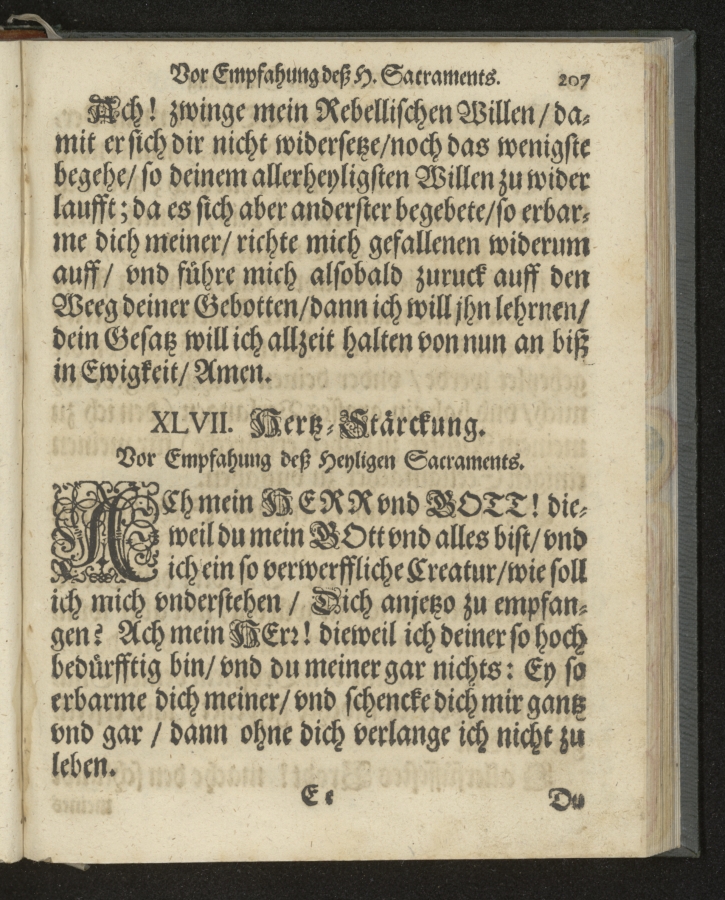 Vor Empfahung deß H. Sacraments. 207
Ach! zwinge mein Rebellischen Willen/ da-
mit er sich dir nicht widersetze/noch das wenigste
begehe/ so deinem allerheyligsten Willen zu wider
laufft; da es sich aber anderster begebete/so erbar-
me dich meiner/ richte mich gefallenen widerum
auff/ vnd führe mich alsobald zuruck auff den
Weeg deiner Gebotten/dann ich will jhn lehrnen/
dein Gesatz will ich allzeit halten von nun an biß
in Ewigkeit/ Amen.
XLVII. Hertz-Stärckung.
Vor Empfahung deß Heyligen Sacraments.
ACh mein HERR vnd GOTT! die-
weil du mein GOtt vnd alles bist/ vnd
ich ein so verwerffliche Creatur/wie soll
ich mich vnderstehen / Dich anjetzo zu empfan-
gen? Ach mein HErꝛ! dieweil ich deiner so hoch
bedürfftig bin/ vnd du meiner gar nichts: Ey so
erbarme dich meiner/ vnd schencke dich mir gantz
vnd gar / dann ohne dich verlange ich nicht zu
leben.
E e Du